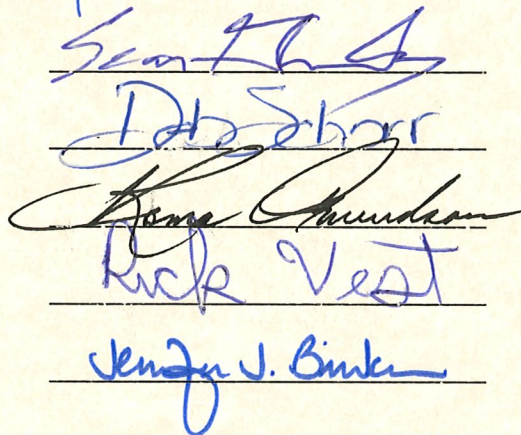 Sean
Deb Schorr
Roma Amundson
Rick Vest
Jennifer J. Brinkman